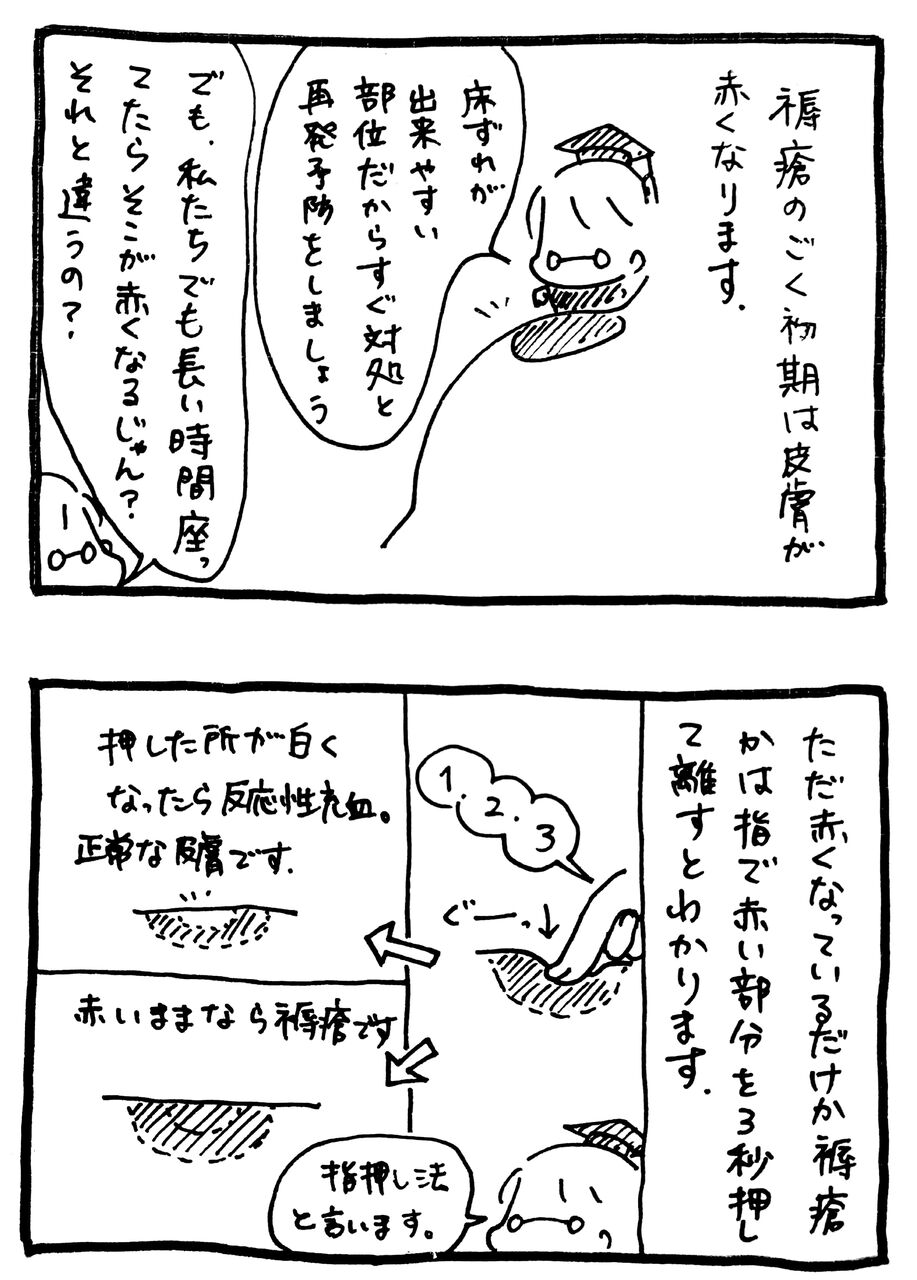 褥瘡のごく初期は皮膚が
赤くなります.
床ずれが
出来やすい
部位だからすぐ対処と
再発予防をしましょう
でも、私たちでも長い時間座っ
てたらそこが赤くなるじゃん?
それと違うの?
ただ赤くなっているだけか褥瘡
かは指で赤い部分を3秒押し
て離すとわかります.
1.2.3
ぐーっ↓
押した所が白く
なったら反応性充血。
正常な皮膚です.
赤いままなら褥瘡です
指押し法
と言います。